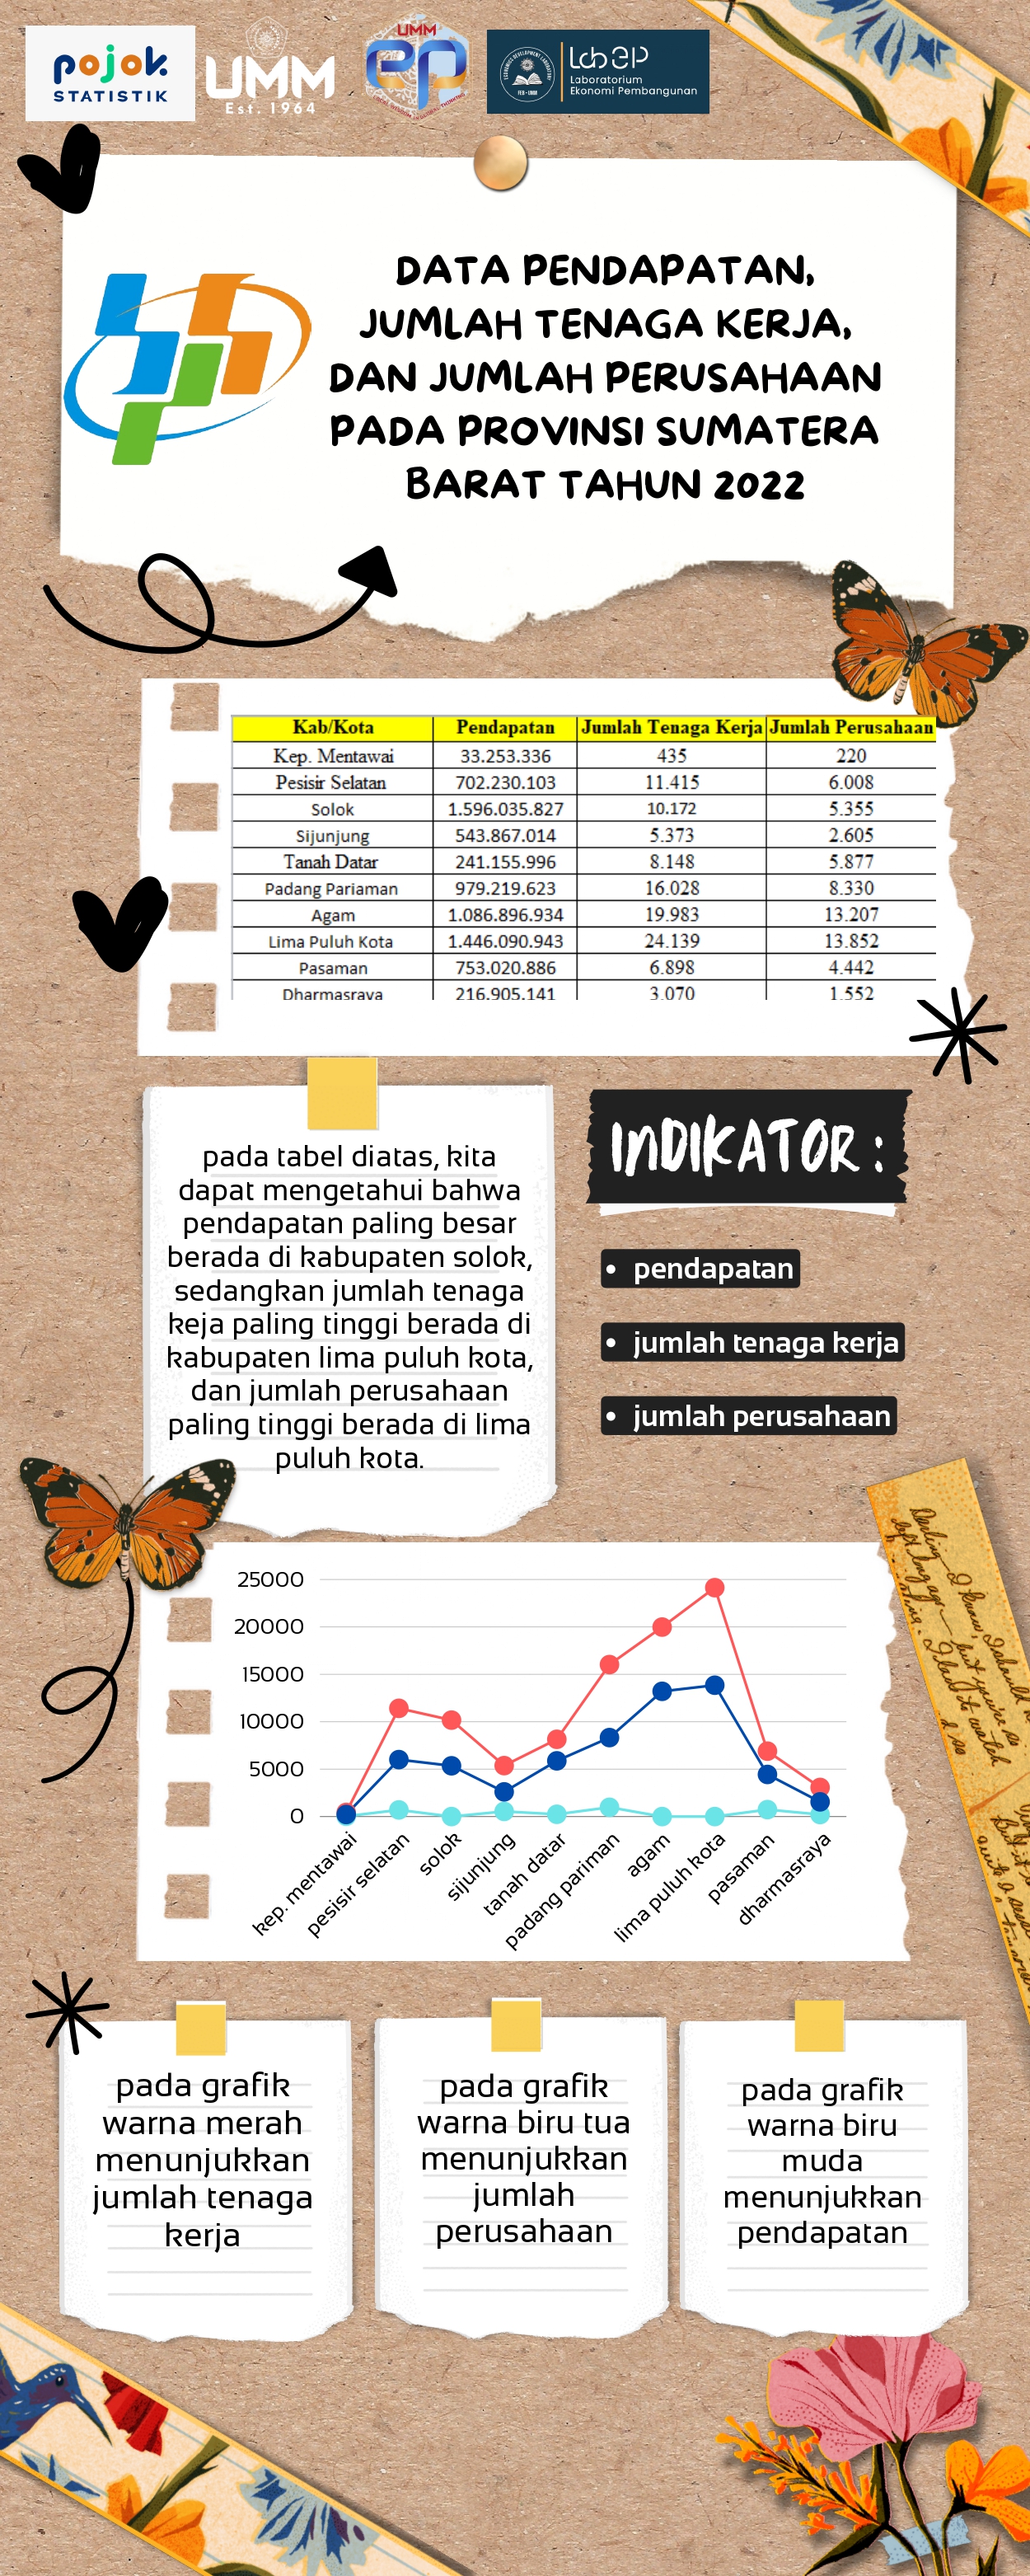 pojok
STATISTIK
UMM
Est. 1964
UMM
ep
Lab EP
Laboratorium
Ekonomi Pembangunan
FEB - UMM
DATA PENDAPATAN,
JUMLAH TENAGA KERJA,
DAN JUMLAH PERUSAHAAN
PADA PROVINSI SUMATERA
BARAT TAHUN 2022
Kab/Kota Pendapatan Jumlah Tenaga Kerja Jumlah Perusahaan
Kep. Mentawai 33.253.336 435 220
Pesisir Selatan 702.230.103 11.415 6.008
Solok 1.596.035.827 10.172 5.355
Sijunjung 543.867.014 5.373 2.605
Tanah Datar 241.155.996 8.148 5.877
Padang Pariaman 979.219.623 16.028 8.330
Agam 1.086.896.934 19.983 13.207
Lima Puluh Kota 1.446.090.943 24.139 13.852
Pasaman 753.020.886 6.898 4.442
Dharmasraya 216.905.141 3.070 1.552
pada tabel diatas, kita
dapat mengetahui bahwa
pendapatan paling besar
berada di kabupaten solok,
sedangkan jumlah tenaga
keja paling tinggi berada di
kabupaten lima puluh kota,
dan jumlah perusahaan
paling tinggi berada di lima
puluh kota.
INDIKATOR :
• pendapatan
• jumlah tenaga kerja
• jumlah perusahaan
25000
20000
15000
10000
5000
0
kep. mentawai
pesisir selatan
solok
sijunjung
tanah datar
padang pariman
agam
lima puluh kota
pasaman
dharmasraya
pada grafik
warna merah
menunjukkan
jumlah tenaga
kerja
pada grafik
warna biru tua
menunjukkan
jumlah
perusahaan
pada grafik
warna biru
muda
menunjukkan
pendapatan